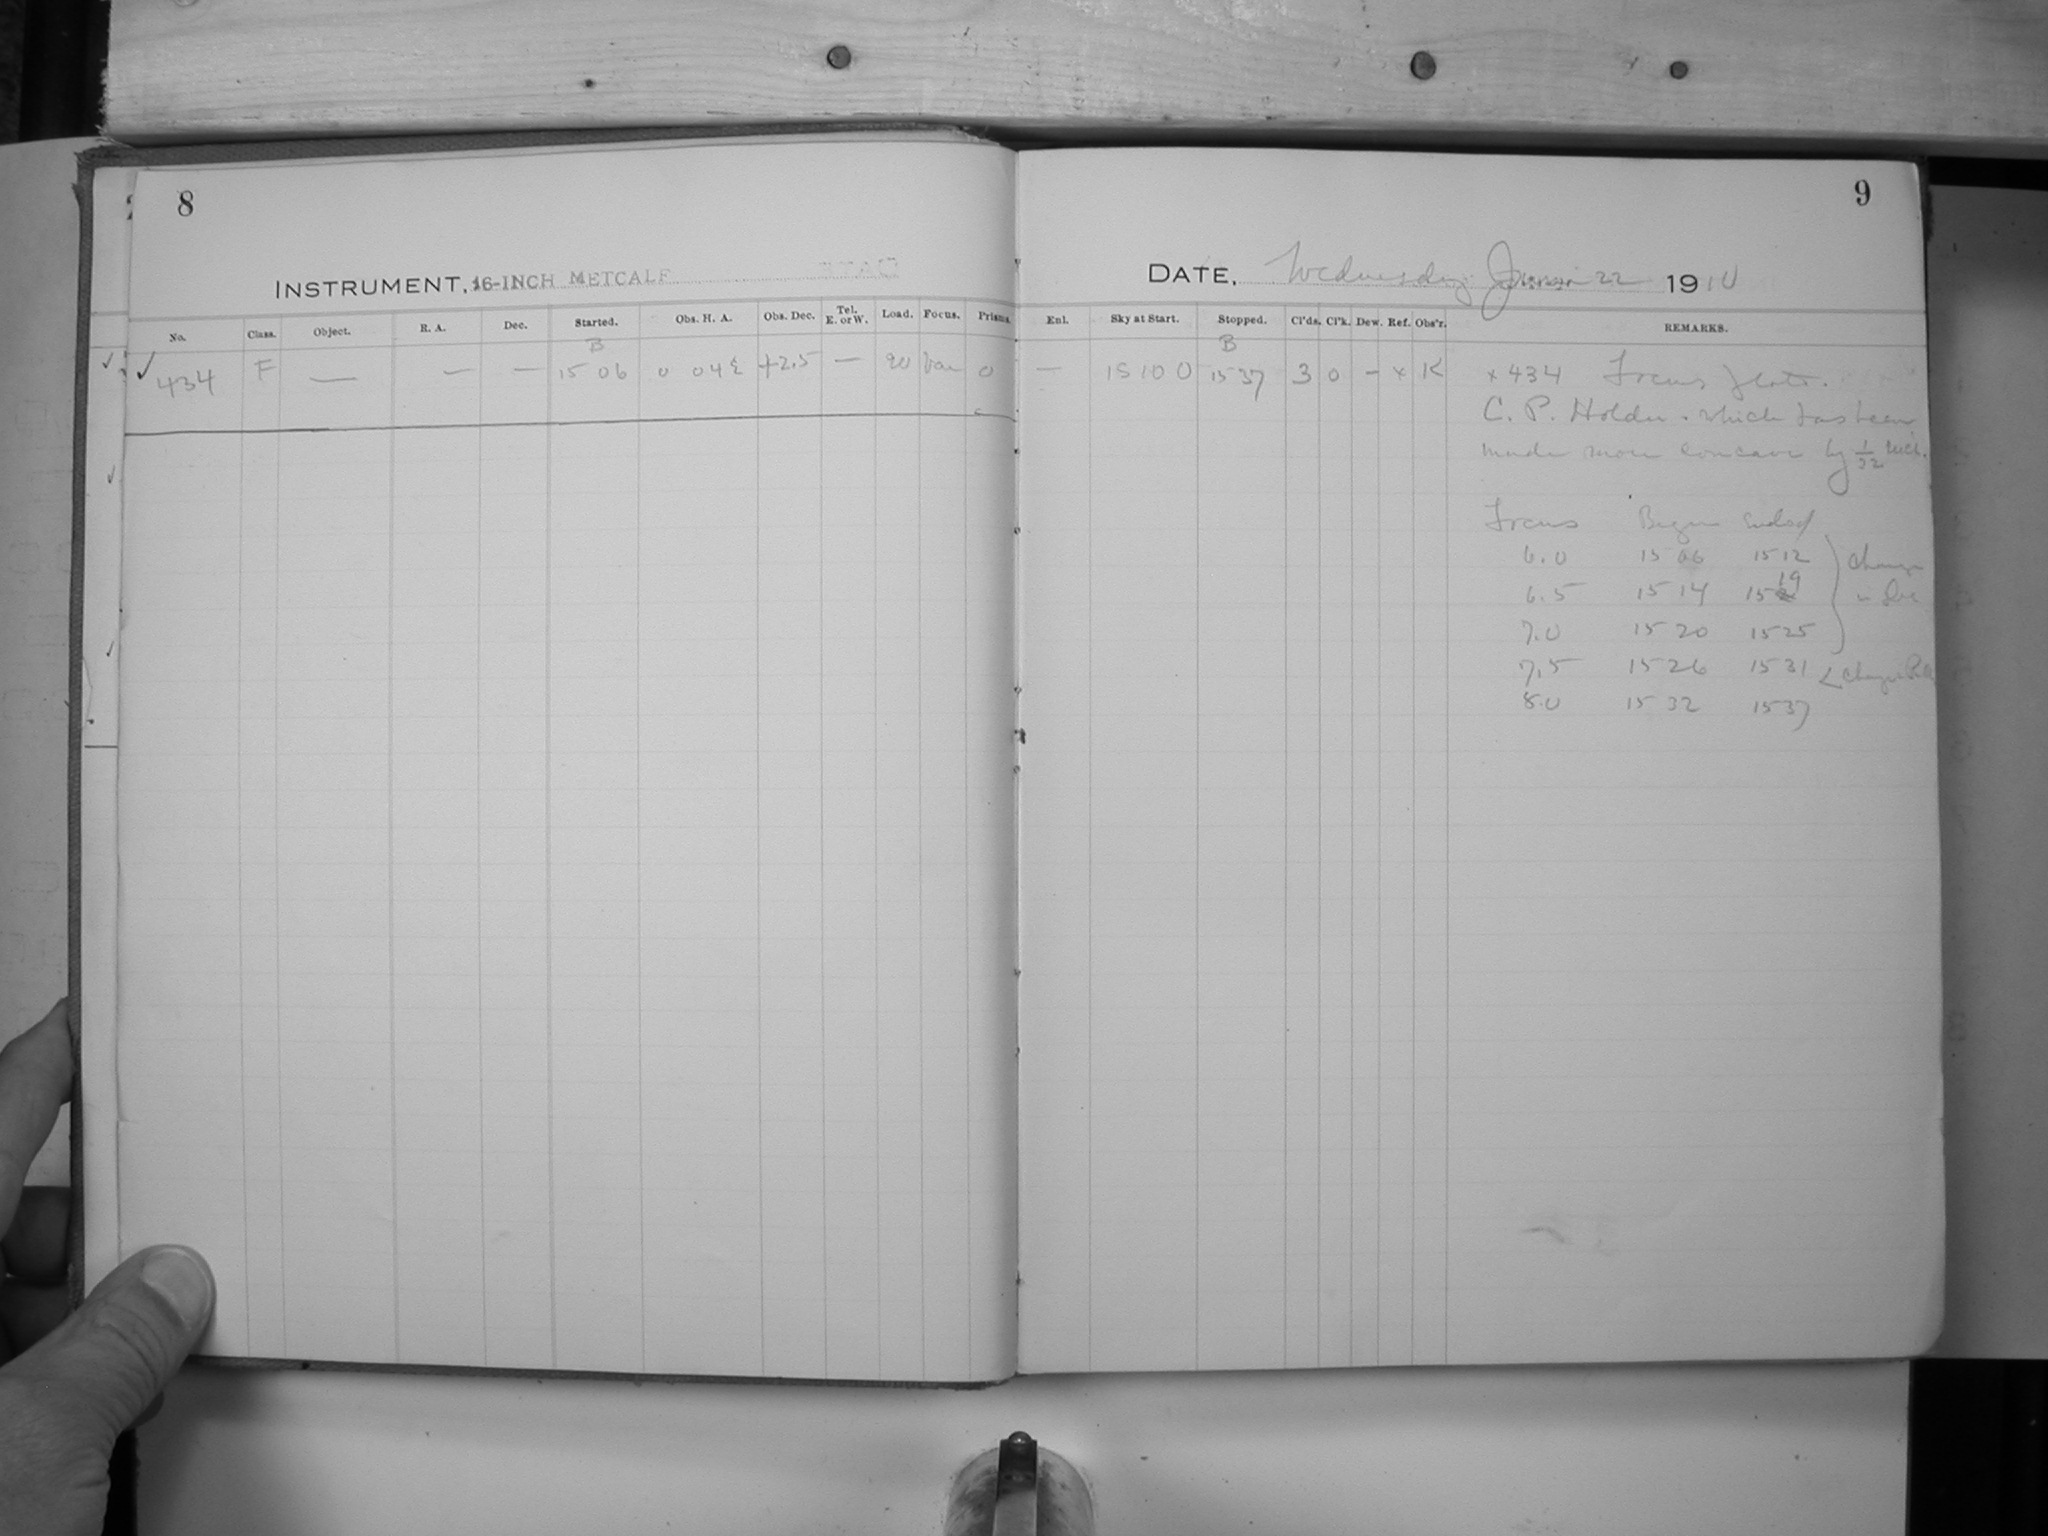 8
INSTRUMENT, 16-INCH METCALF
No. Class. Object. R. A. Dec. Started. Obs. H. A. Obs. Dec. Tel. E. or W. Load. Focus. Prisms.
B
✓ 434 F — — — 15 06 0 04 E +2.5 — 20 Var 0
9
DATE, Wednesday June 22 1910
Enl. Sky at Start. Stopped. Cl'ds. Cl'k. Dew. Ref. Obs'r. REMARKS.
B
— 15 10 0 15 37 3 0 - x K x 434 Focus plate.
C. P. Holder. which has been
made more concave by 1/32 inch.
Focus Began Ended
6.0 15 06 15 12 } change
6.5 15 14 15 19 in Dec
7.0 15 20 15 25
7.5 15 26 15 31 < change R.A.
8.0 15 32 15 37